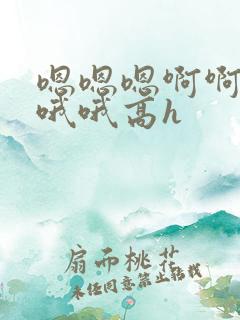 嗯嗯嗯啊啊
哦哦高h
扇而桃花
未经同意禁止转载